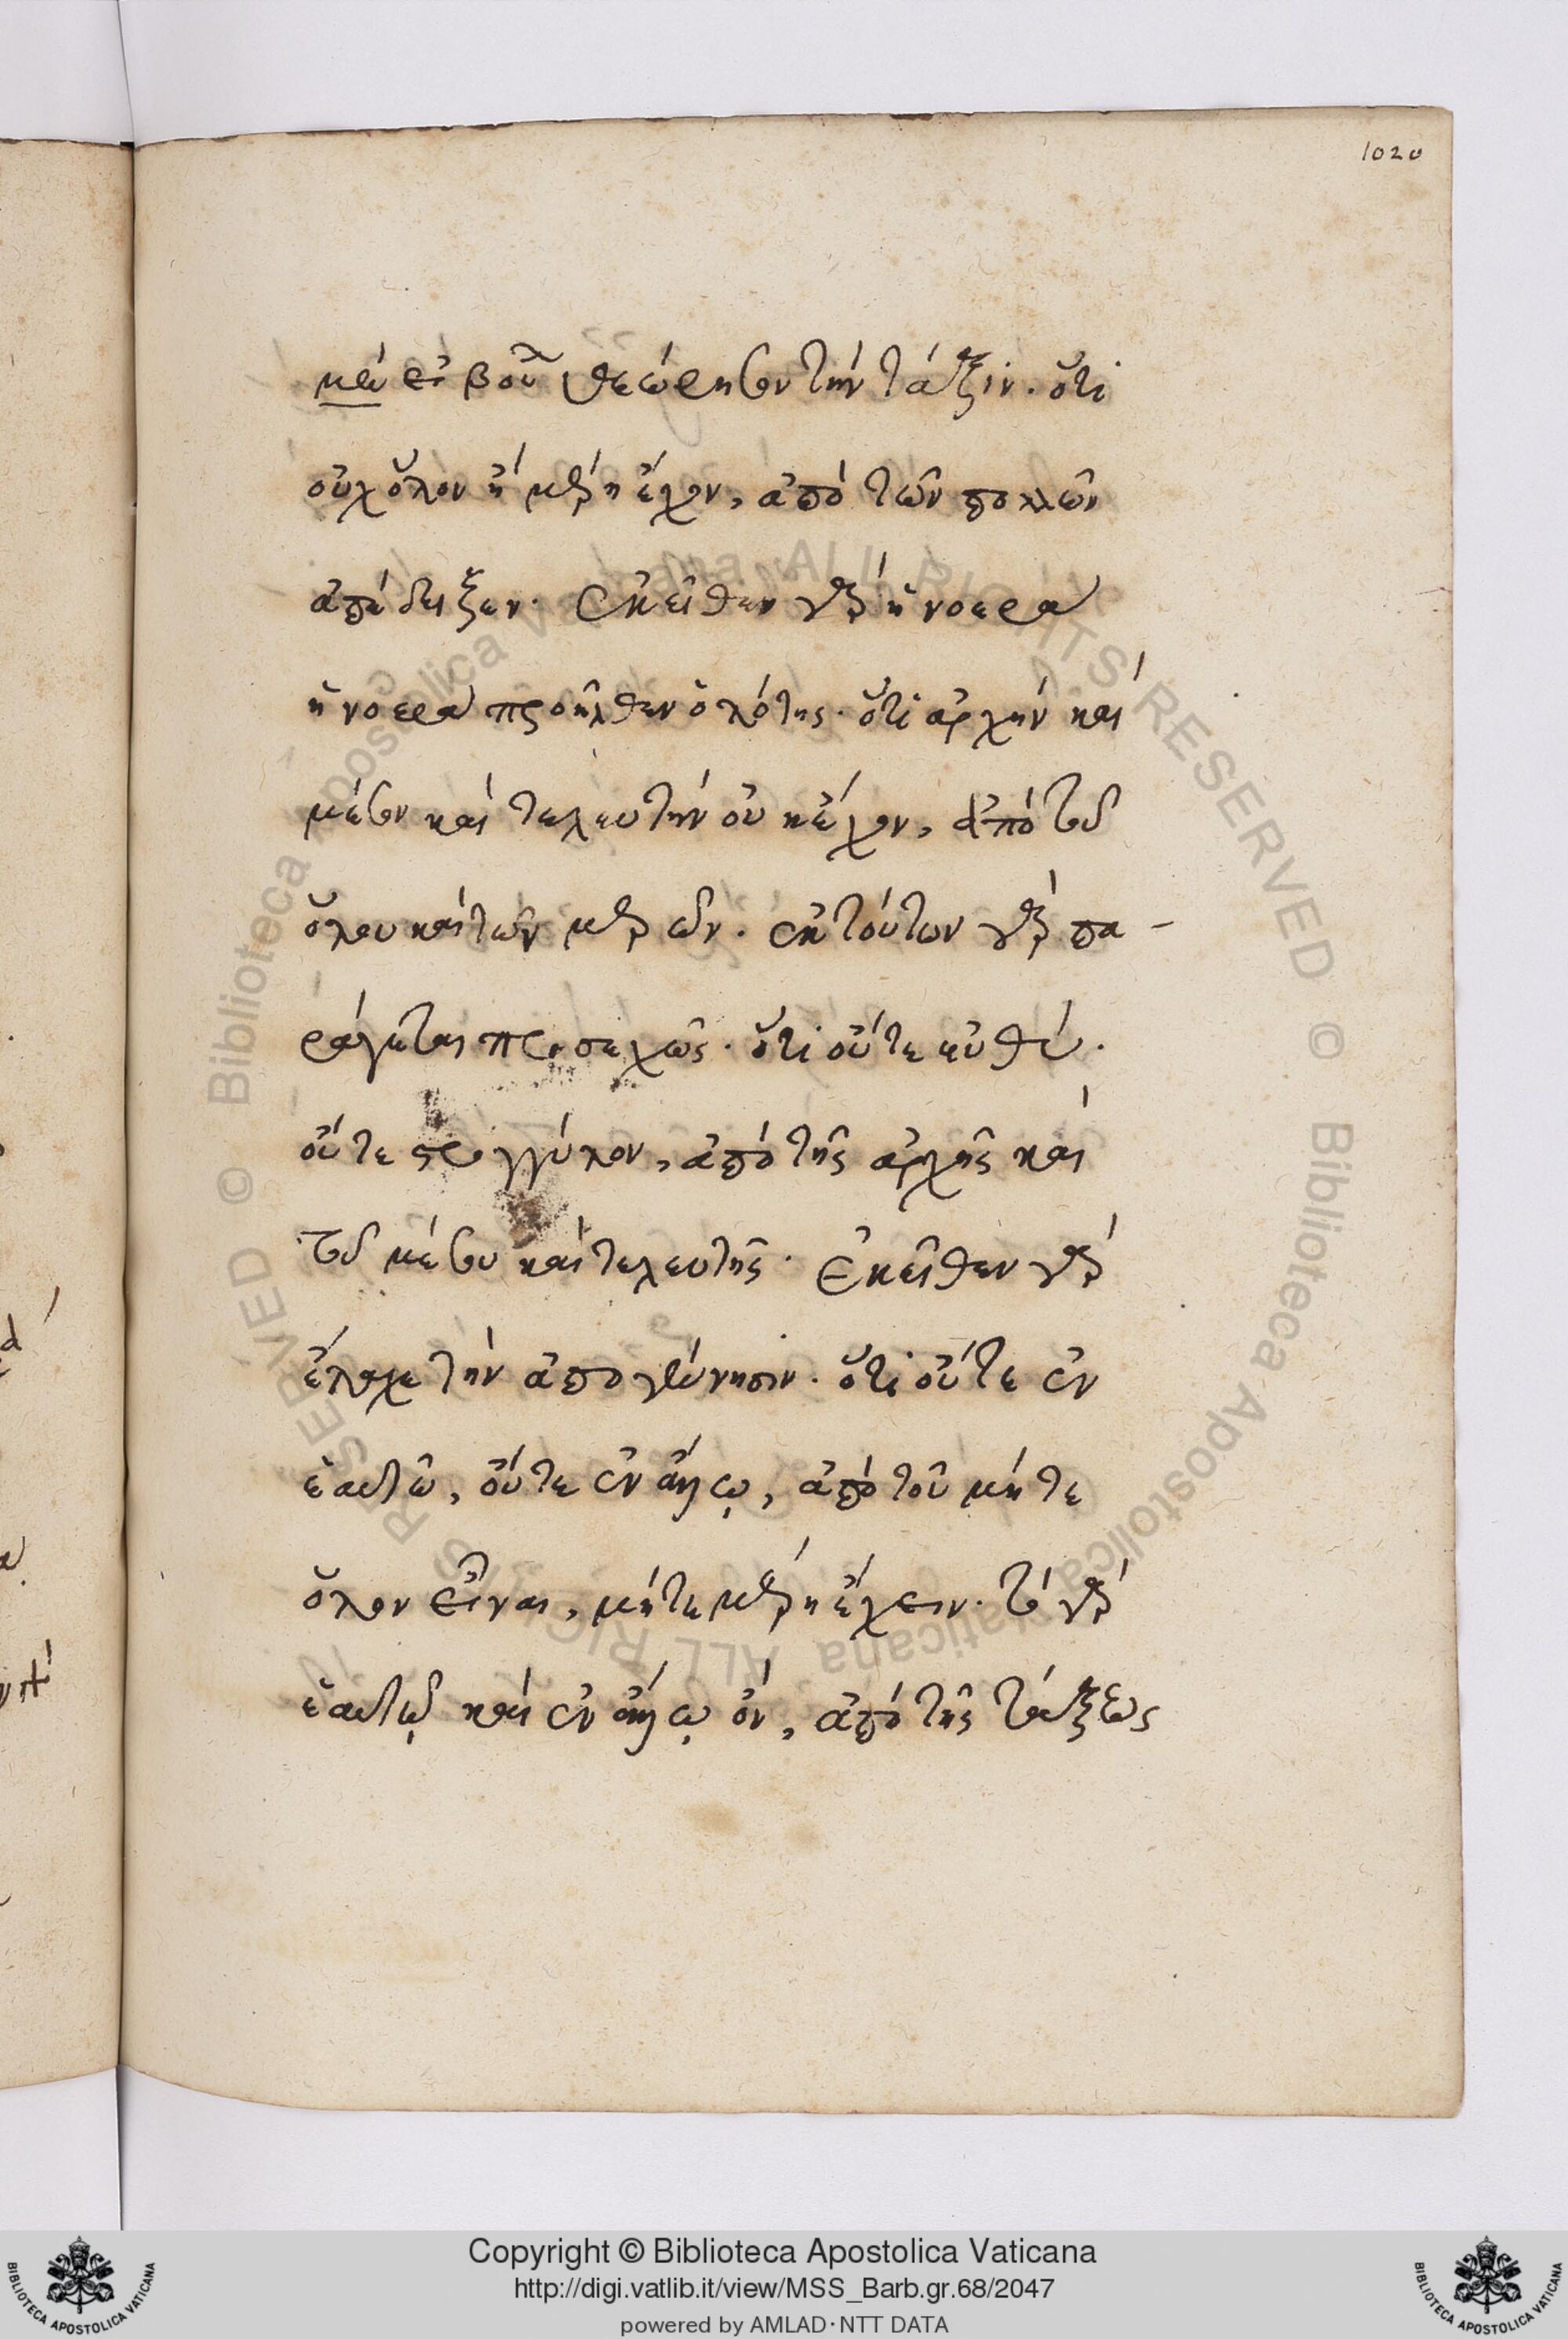 1020
καὶ εἰ βούλει θεώρησον τὴν τάξιν. ὅτι
οὐχ ὅλον ἢ μέρη ἔχον, ἀπὸ τῶν πολλῶν
ἀπέδειξεν. ἐκεῖθεν γὰρ ἡ νοερὰ
ἡ νοερὰ προῆλθεν ὁλότης. ὅτι ἀρχὴν καὶ
μέσον καὶ τελευτὴν οὐκ ἔχον, ἀπὸ τοῦ
ὅλου καὶ τῶν μερῶν. ἐκ τούτων γὰρ πα-
ράγεται προσεχῶς. ὅτι οὔτε εὐθύ.
οὔτε στρογγύλον, ἀπὸ τῆς ἀρχῆς καὶ
τοῦ μέσου καὶ τελευτῆς. Ἐκεῖθεν γὰρ
ἔλαχε τὴν ἀπογέννησιν. ὅτι οὔτε ἐν
ἑαυτῶ, οὔτε ἐν ἄλλῳ, ἀπὸ τοῦ μήτε
ὅλον εἶναι, μήτε μέρη ἔχειν. τὸ γὰρ
ἑαυτῷ καὶ ἐν ἄλλῳ ὄν, ἀπὸ τῆς τάξεως
Copyright © Biblioteca Apostolica Vaticana
http://digi.vatlib.it/view/MSS_Barb.gr.68/2047
powered by AMLAD·NTT DATA
BIBLIOTECA APOSTOLICA VATICANA
BIBLIOTECA APOSTOLICA VATICANA
© Biblioteca Apostolica Vaticana ALL RIGHTS RESERVED
© Biblioteca Apostolica Vaticana ALL RIGHTS RESERVED